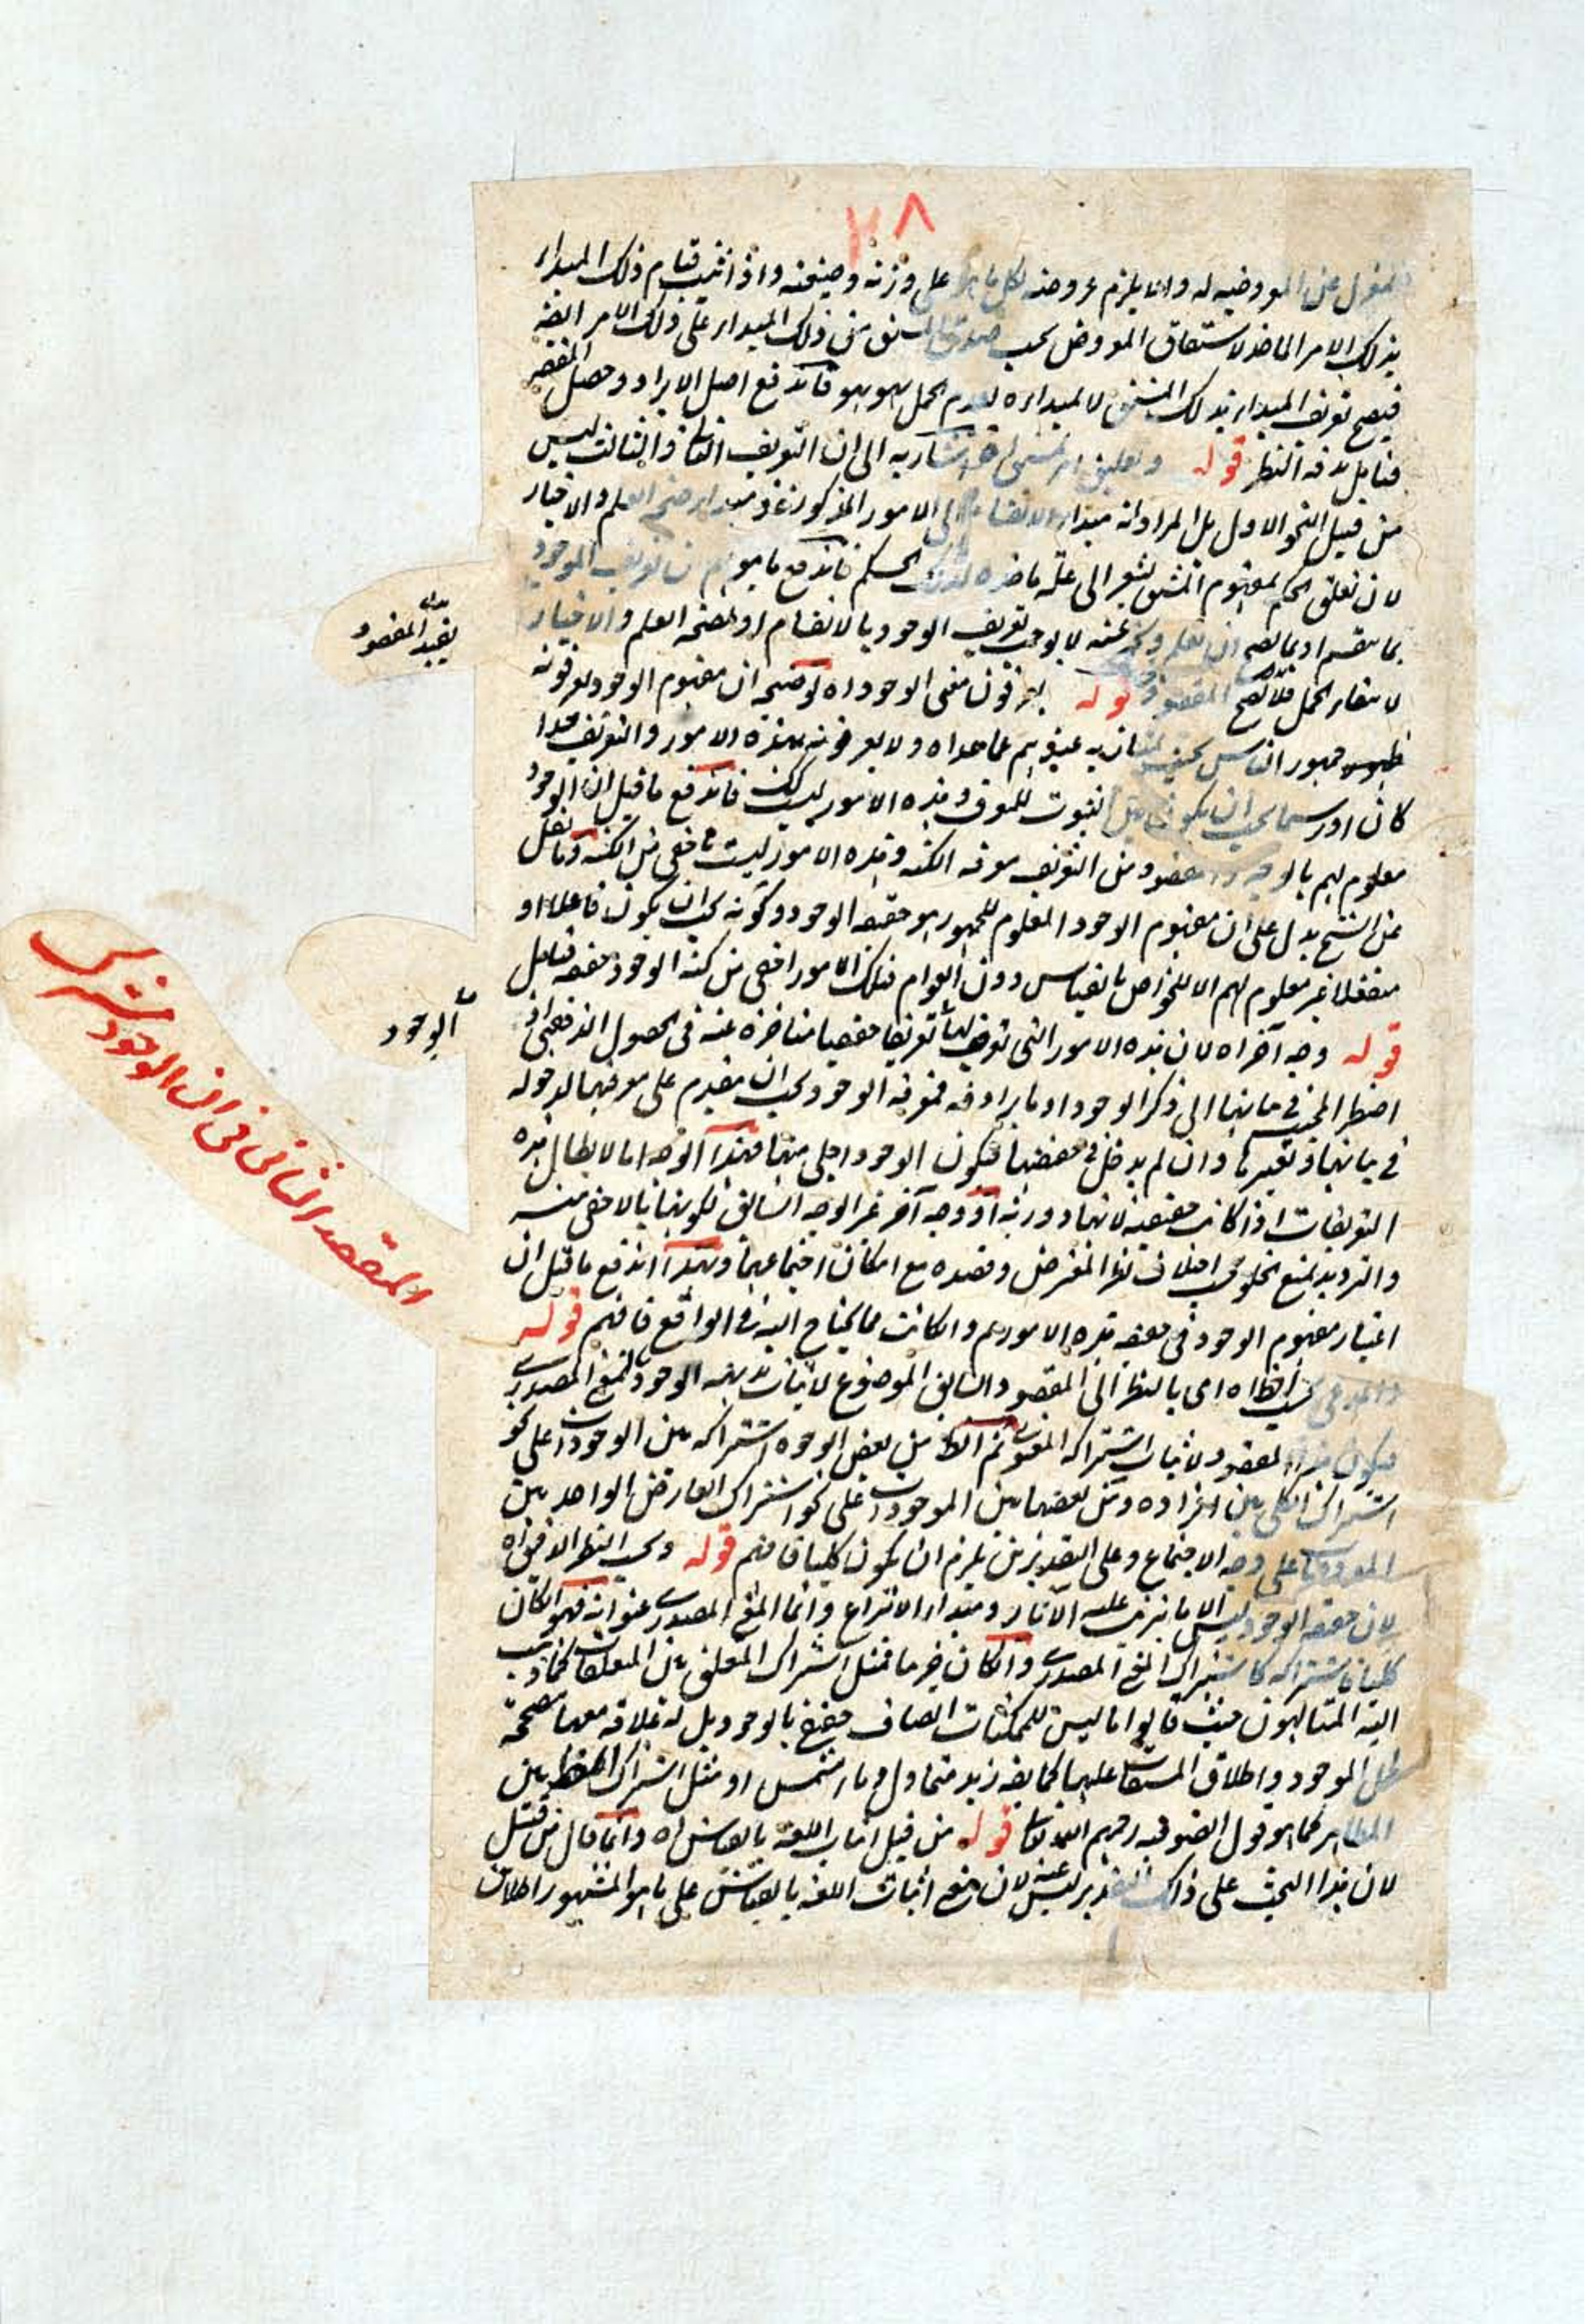 ٢٨
على وزنه وصيغته واذا ثبت قيام ذلك المبداء
بذلك الامر الماخذ لاشتقاق المعروض بحسب صدق المشتق من ذلك المبداء على ذلك الامر ايضه
فيصح تعريف المبداء بذلك المشتق لا لمبداءه لعدم الحمل هو هو فاندفع اصل الايراد وحصل المقصر
فتامل بدقة النظر قوله اشار به الى ان التعريف الثانى والثالث ليس
من قبيل النحو الاول بل المراد انه مبداء الانقسام الى الامور المذكورة ومبداء صحة العلم والاخبار
لان تعلق الحكم بمفهوم المشتق يشعر الى علة ماخذه لذلك الحكم فاندفع ما يوهم ان تعريف الموجود
بما ينقسم او بما يصح ان يعلم ويخبر عنه لا يوجب تعريف الوجود بالانقسام او لصحة العلم والاخبار
يفيد المقصود
قوله يعرفون معنى الوجود اه توضيحه ان مفهوم الوجود يعرفونه
جمهور الناس بحيث يمتاز به عندهم عما عداه ولا يعرفونه بهذه الامور والتعريف حدا
كان او رسما يجب ان يكون بين الثبوت للمعرف وهذه الامور ليست كك فاندفع ما قيل ان الوجود
معلوم لهم بالوجه والمقصود من التعريف معرفة الكنه وهذه الامور ليست باخفى من الكنه وما نقل
عن الشيخ يدل على ان مفهوم الوجود المعلوم للجمهور هو حقيقة الوجود وكونه يجب ان يكون فاعلا او
منفعلا غير معلوم لهم الا للخواص بالقياس دون العوام فتلك الامور اخفى من كنه الوجود حقيقة فتامل
قوله وجه آخر اه لان هذه الامور التى تعريفها تعريفا حقيقيا متاخرة عنه فى الحصول الذهنى اذ
الوجود
اضطر المجيب فى بيانها الى ذكر الوجود او ما يرادفه فمعرفة الوجود يجب ان يتقدم على معرفتها لدخوله
فى بيانها وتعبيرها وان لم يدخل فى حقيقتها فيكون الوجود اجلى منها فهذا الوجه اما لابطال هذه
التعريفات اذا كانت حقيقية لانها دورية او وجه آخر غير الوجه السابق لكونها بالاخفى منه
والترديد لمنع الخلو بحسب اختلاف نظر المعترض وقصده مع امكان اجتماعهما وبهذا اندفع ما قيل ان
اعتبار مفهوم الوجود فى حقيقة هذه الامور مم وان كانت مما يحتاج اليه فى الواقع فافهم قوله
المقصد الثانى فى ان الوجود مشترك
بحسب الظاه اى بالنظر الى المقصود السابق الموضوع لاثبات بداهة الوجود بالمعنى المصدرى
فيكون هذا المقصود لاثبات اشتراكه المعنوى ثم الظ من بعض الوجوه اشتراكه بين الوجودات على نحو
اشتراك الكلى بين افراده ومن بعضها بين الموجودات على نحو اشتراك العارض الواحد بين
المعروضات على وجه الاجتماع وعلى التقديرين يلزم ان يكون كليا فافهم قوله وبحسب النظر الدقيق اه
لان حقيقة الوجود ليس الا ما يترتب عليه الآثار ومبداء الانتزاع وانما المعنى المصدرى عنوانه فهو ان كان
كليا فاشتراكه كاشتراك المعنى المصدرى وان كان جزئيا فمثل اشتراك المتعلق بين المتعلقات كما ذهب
اليه المتالهون حيث قالوا ما ليس للممكنات اتصاف حقيقى بالوجود بل له علاقة معها مصححة
لحمل الموجود واطلاق المشتقات عليها كما يقه زيد متمول وماء مشمس او مثل اشتراك الظاهر بين
المظاهر كما هو قول الصوفيه رحمهم الله تعالى قوله من قبيل اثبات اللغه بالقياس اه وانما قال من قبيل
لان هذا البحث على ذلك التقدير ليس عينه لان معنى اثبات اللغه بالقياس على ما هو المشهور اطلاق